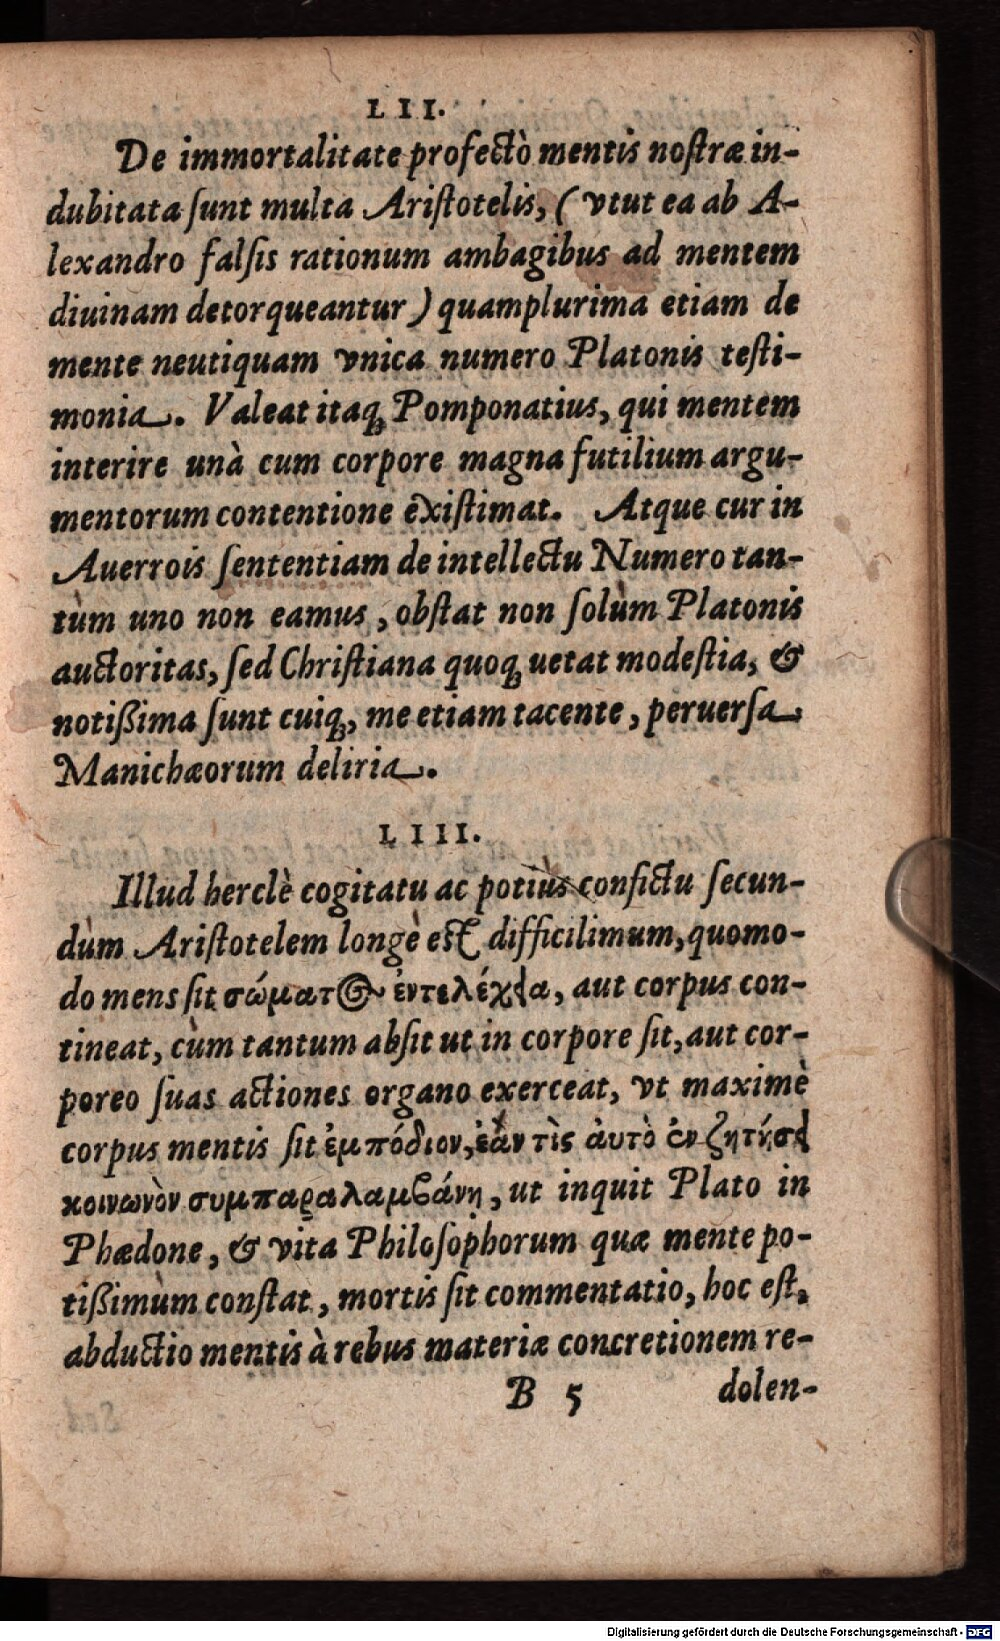 LII.
De immortalitate profectò mentis nostræ in-
dubitata sunt multa Aristotelis, ( vtut ea ab A-
lexandro falsis rationum ambagibus ad mentem
diuinam detorqueantur ) quamplurima etiam de
mente neutiquam vnica numero Platonis testi-
monia. Valeat itaqꝫ Pomponatius, qui mentem
interire unà cum corpore magna futilium argu-
mentorum contentione existimat. Atque cur in
Auerrois sententiam de intellectu Numero tan-
tùm uno non eamus, obstat non solùm Platonis
auctoritas, sed Christiana quoqꝫ uetat modestia, &
notißima sunt cuiqꝫ, me etiam tacente, peruersa
Manichæorum deliria.
LIII.
Illud herclè cogitatu ac potius confictu secun-
dùm Aristotelem longè est difficilimum, quomo-
do mens sit σώματος ἐντελέχεια, aut corpus con-
tineat, cùm tantum absit ut in corpore sit, aut cor-
poreo suas actiones organo exerceat, vt maximè
corpus mentis sit ἐμπόδιον, ἐάν τὶς ἀυτὸ ἐν ζητήσει
κοινωνὸν συμπαραλαμβάνη, ut inquit Plato in
Phædone, & vita Philosophorum quæ mente po-
tißimùm constat, mortis sit commentatio, hoc est,
abductio mentis à rebus materiæ concretionem re-
B 5 dolen-
Digitalisierung gefördert durch die Deutsche Forschungsgemeinschaft - DFG